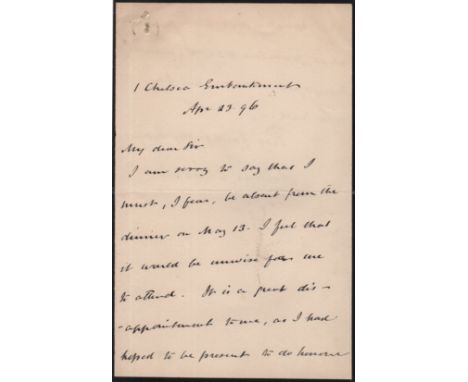 1 Chelsea Embankment
Apr 23. 96
My dear Sir
I am sorry to say that I
must, I fear, be absent from the
dinner on May 13. I feel that
it would be unwise for me
to attend. It is a great dis-
-appointment to me, as I had
hoped to be present to do honour